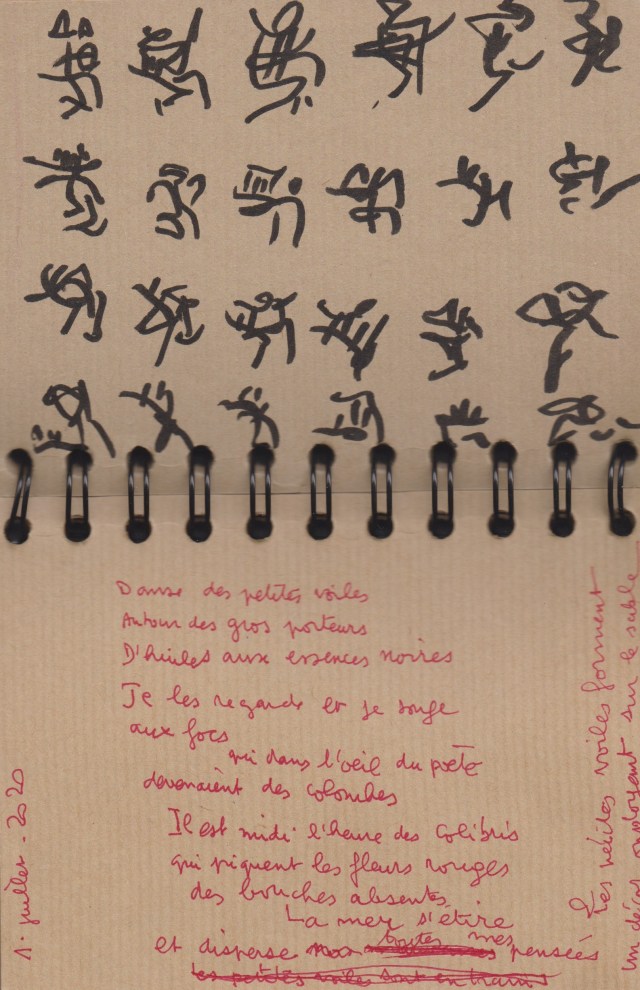 Danse des petites voiles
Autour des gros porteurs
D'huiles aux essences noires
Je les regarde et je songe
aux focs
qui dans l'oeil du poète
devenaient des colombes
Il est midi l'heure des colibris
qui piquent les fleurs rouges
des bouches absentes
La mer s'étire
et disperse toutes mes pensées
les petites voiles sont en train
1. juillet. 2020
Les petites voiles forment
un décor ondoyant sur le sable